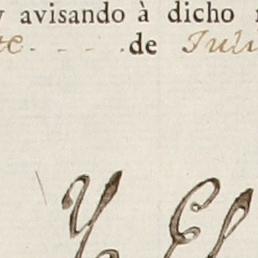 y avisando à dicho
te de Juli
Yo El